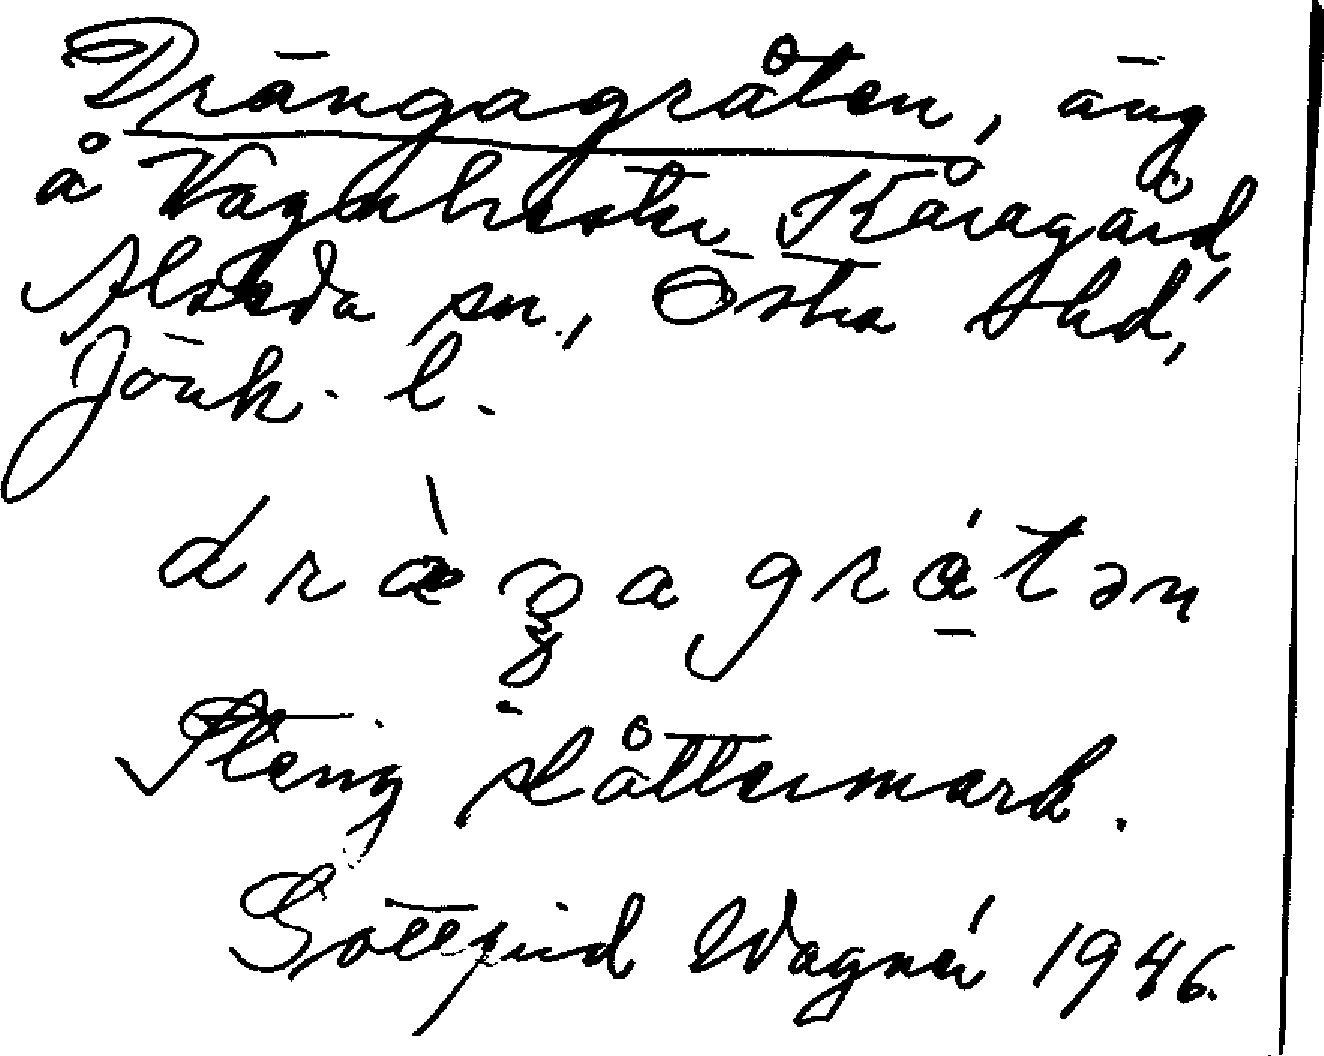 Drängagråten, äng
å Vagnhester Kåragård,
Alseda sn., Östra hd,
Jönk. l.
dràŋagrátən
Stenig slåttermark.
Gottfrid Wagnér 1946.